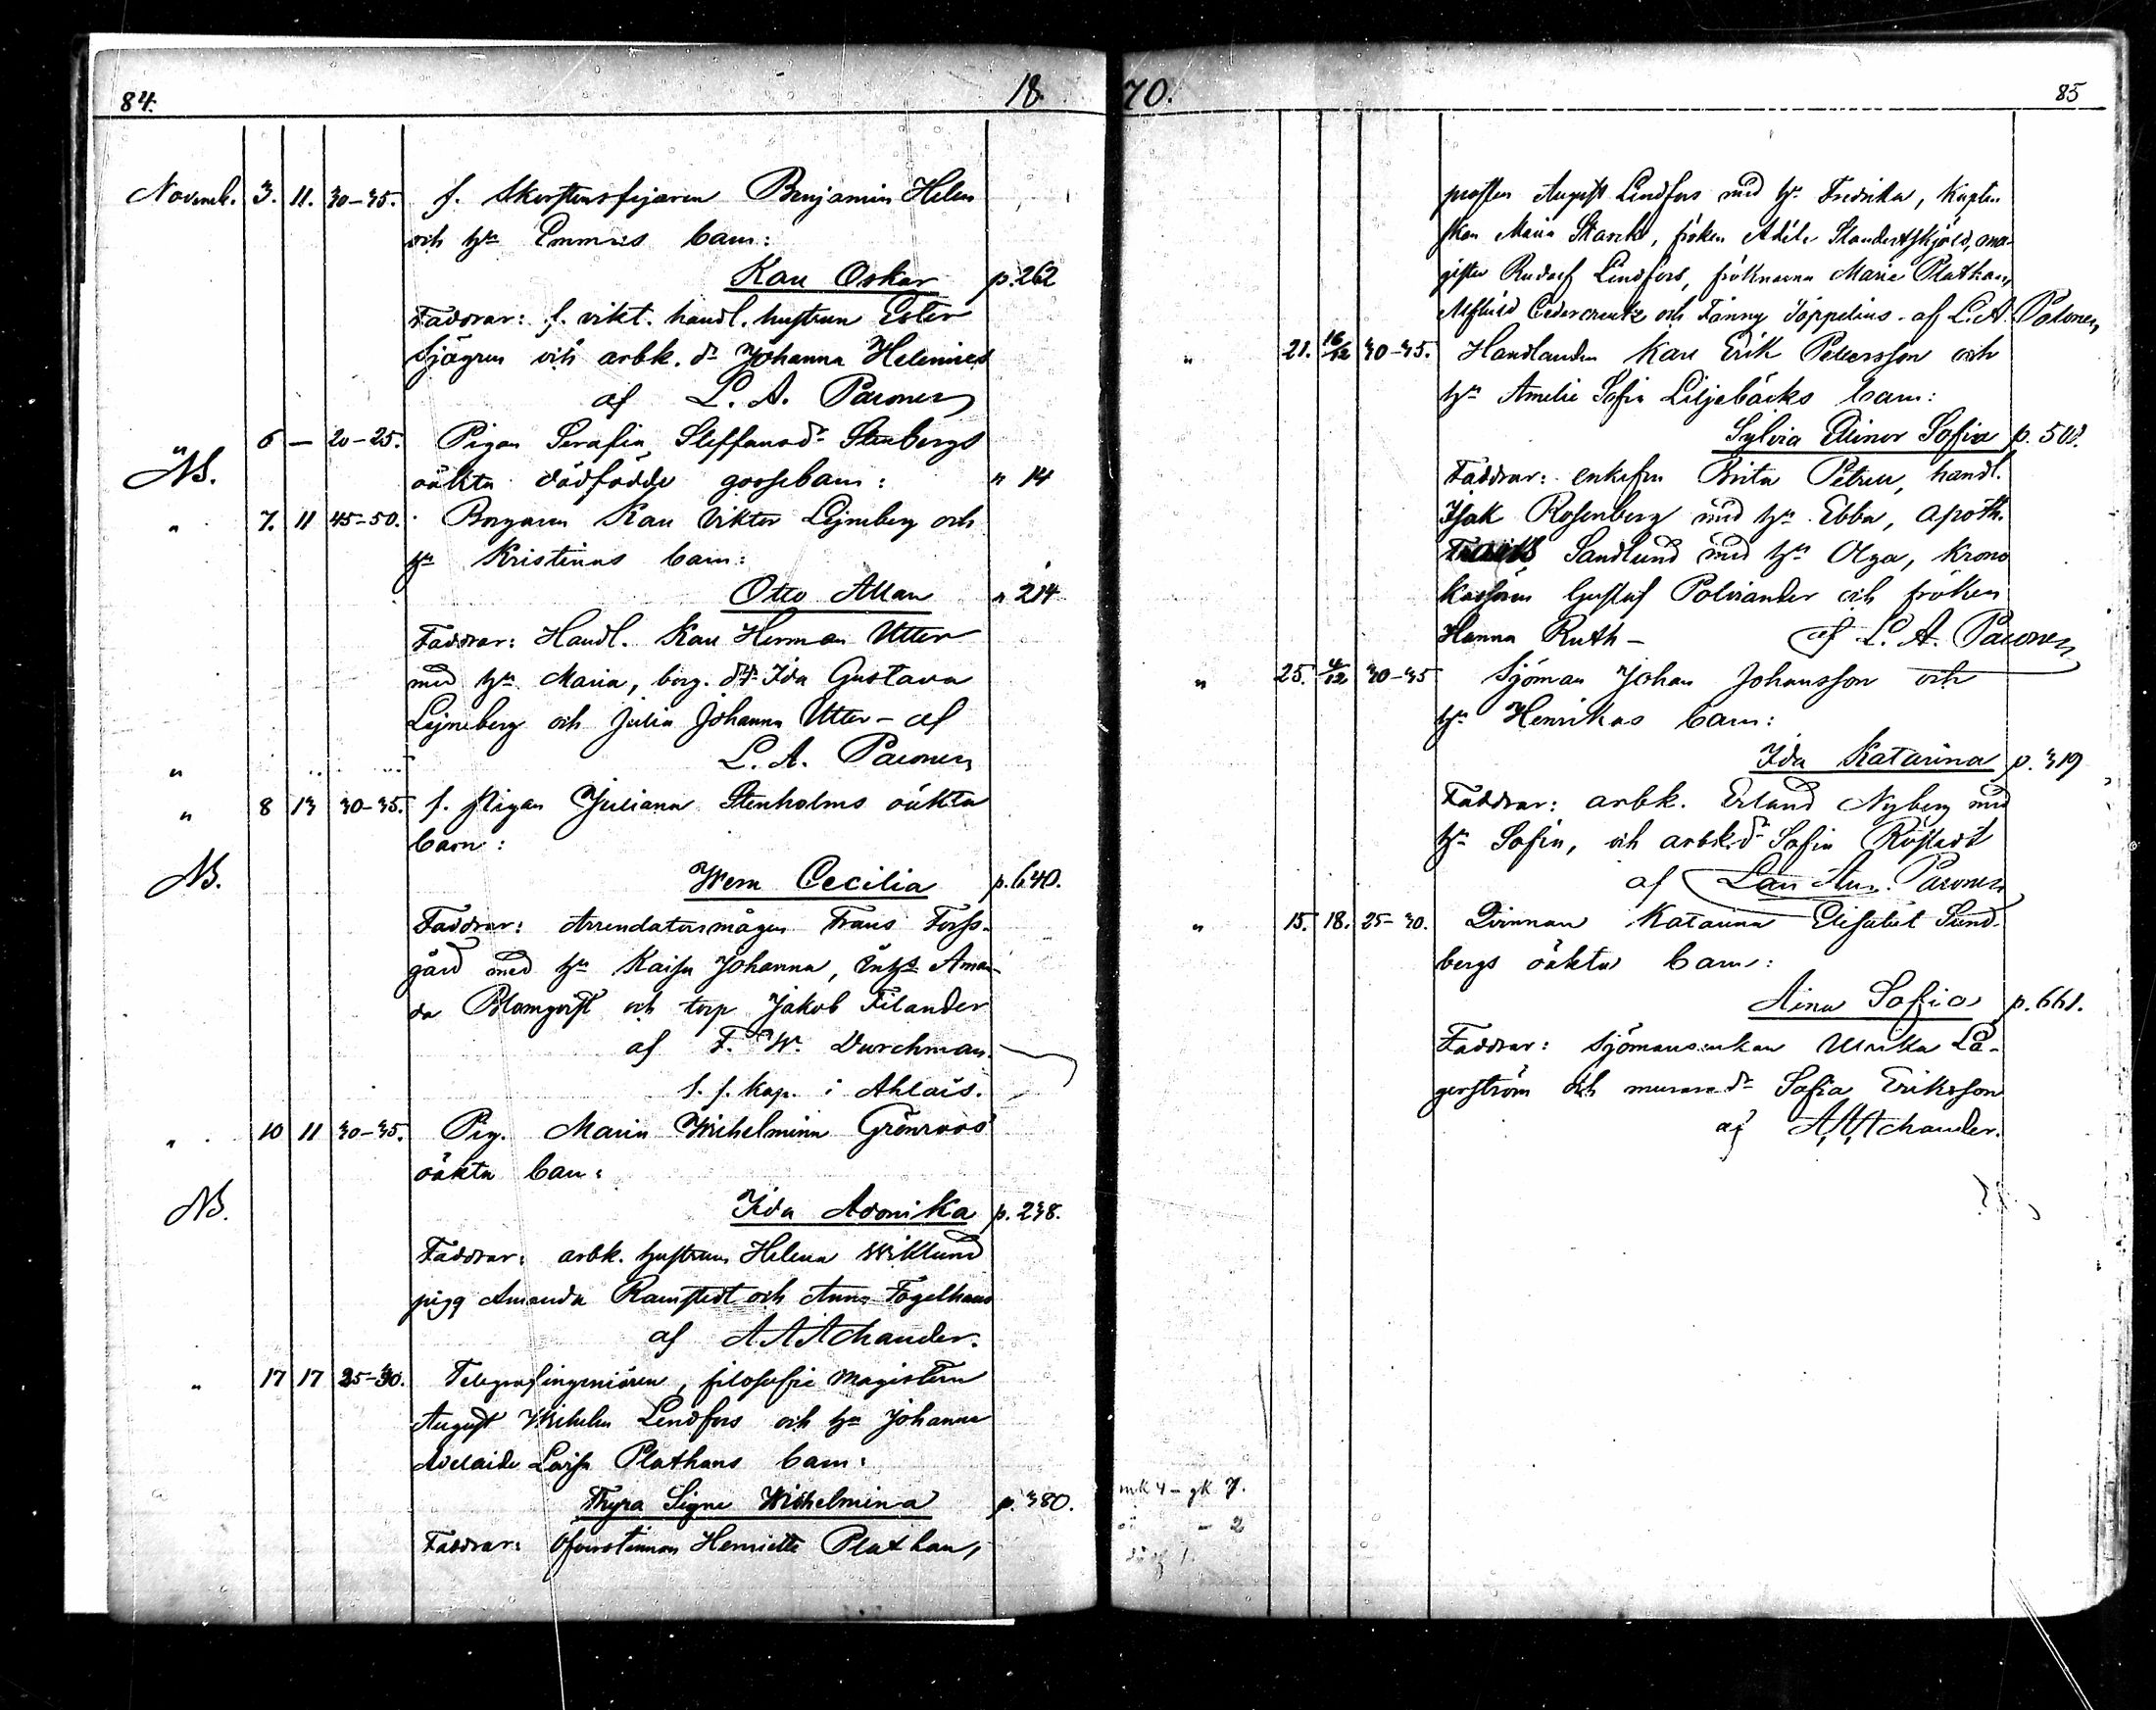 84. 18
Novemb. 3. 11. 30–35. f. Skorstensfejaren Benjamin Helen
och hu Emmas barn:
Karl Oskar p. 262
Faddrar: f. vikt. handl. hustrun Ester
Sjögren och arbk. dr Johanna Helenius
af L. A. Palonen
" 6 — 20–25. Pigan Serafia Steffansdr Stenbergs
NB. oäkta dödfödde gossebarn: " 14
" 7. 11 45–50. Borgaren Karl Viktor Lejneberg och
hu Kristinas barn:
Otto Allan " 214
Faddrar: Handl. Karl Herman Utter
med hu Maria, borg. Ida Gustava
Lejneberg och Julia Johanna Utter – af
L. A. Palonen
"
" 8 13 30–35. f. pigan Juliana Stenholms oäkta
barn:
NB. Wera Cecilia p. 640.
Faddrar: Arrendatorsmågen Frans Forss-
gård med hu Kaisa Johanna, Aman-
da Blomqvist och torp Jakob Filander
af F. W. Durchman
s. f. kap. i Ahlais.
" 10 11 30–35. Pig. Maria Wilhelmina Grönroos
oäkta barn:
NB. Ida Adonika p. 238.
Faddrar: arbk. hustrun Helena Wiklund
pigg Amanda Ramstedt och Anna Fogelhans
af A. A. Achander.
" 17 17 25–30. Telegrafingeniören, filosofie magistern
August Wilhelm Lindfors och hu Johanna
Adelaide Lovisa Plathans barn:
Thyra Signe Wilhelmina p. 380.
Faddrar: Öfverstinnan Henriette Plathan,
70. 85
prosten August Lindfors med hu Fredrika, Kapten
skan Maria Starck, fröken Adéle Standertskjöld, ma-
gister Rudolf Lindfors, fröknarna Marie Plathan,
Alfhild Cedercreutz och Fanny Toppelius – af L. A. Palonen
" 21. 16/12 30–35. Handlanden Karl Erik Petersson och
hu Amelie Sofia Liljebäcks barn:
Sylvia Ellinor Sofia p. 500.
Faddrar: enkefru Brita Petrell, handl.
Isak Rosenberg med hu Ebba, apoth.
Frans Sandlund med hu Olga, Krono
kassören Gustaf Polviander och fröken
Hanna Ruth – af L. A. Palonen
" 25. 4/12 30–35 Sjöman Johan Johansson och
hu Henrikas barn:
Ida Katarina p. 319
Faddrar: arbk. Erland Nyberg med
hu Sofia, och arbk. dr Sofia Röstedt
af Lars Aug. Palonen
" 15. 18. 25–30. Qvinnan Katarina Elisabet Sund-
bergs oäkta barn:
Aina Sofia p. 661.
Faddrar: Sjömansenkan Ulrika La-
gerström och murare dr Sofia Eriksson
af A. A. Achander.
mk 4 – qk 7.
oä – 2
dödf 1.